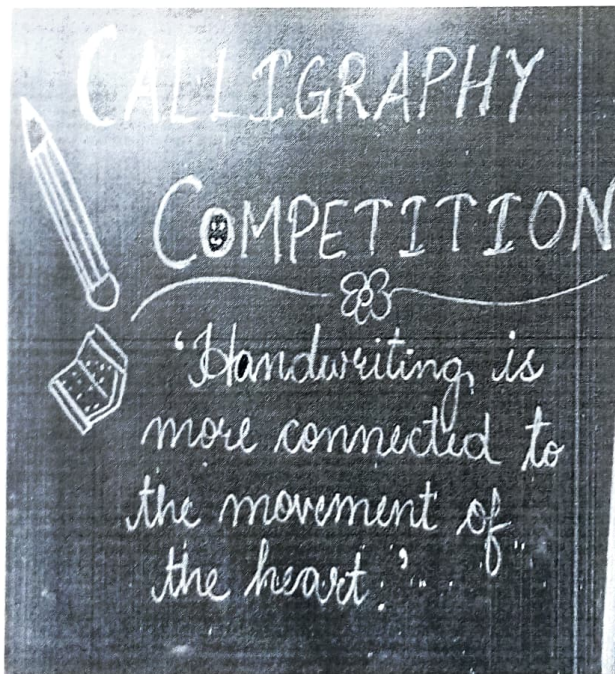 CALLIGRAPHY
COMPETITION
'Handwriting is
more connected to
the movement of
the heart.'